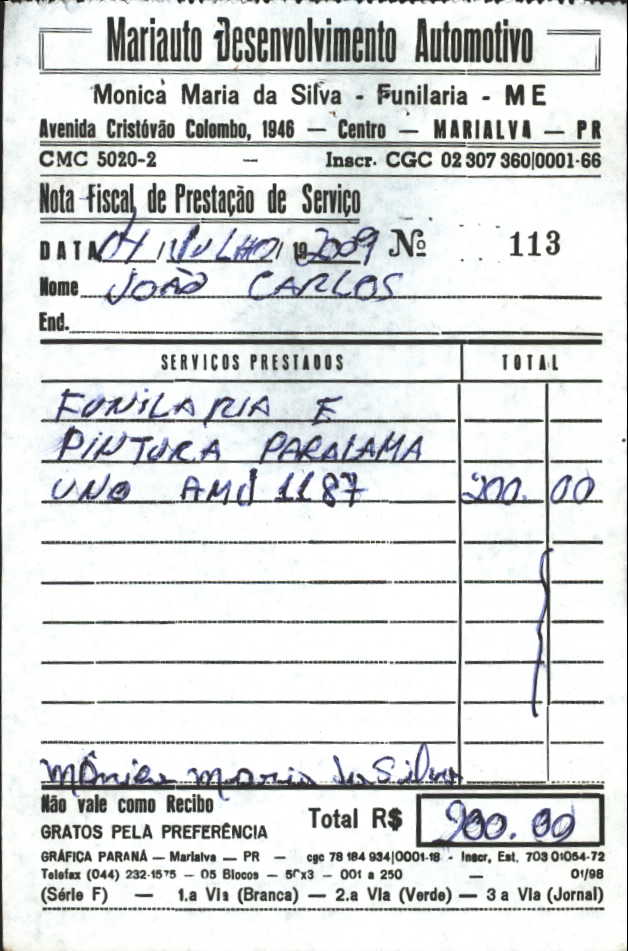 Mariauto Desenvolvimento Automotivo
Monica Maria da Silva - Funilaria - ME
Avenida Cristóvão Colombo, 1946 — Centro — MARIALVA — PR
CMC 5020-2 — Inscr. CGC 02 307 360|0001-66
Nota Fiscal de Prestação de Serviço
DATA 04 / JULHO / 19 2009 Nº 113
Nome JOÃO CARLOS
End.
SERVIÇOS PRESTADOS TOTAL
FUNILARIA E
PINTURA PARALAMA
UNO AMJ 1187 200. 00
Mônica Maria da Silva
Não vale como Recibo
GRATOS PELA PREFERÊNCIA
Total R$ 200.00
GRÁFICA PARANÁ — Marialva — PR — cgc 78 184 934|0001-18 - Inscr, Est, 703 01054-72
Telefax (044) 232-1575 — 05 Blocos — 50x3 — 001 a 250 — 01/98
(Série F) — 1.a Via (Branca) — 2.a Via (Verde) — 3 a Via (Jornal)